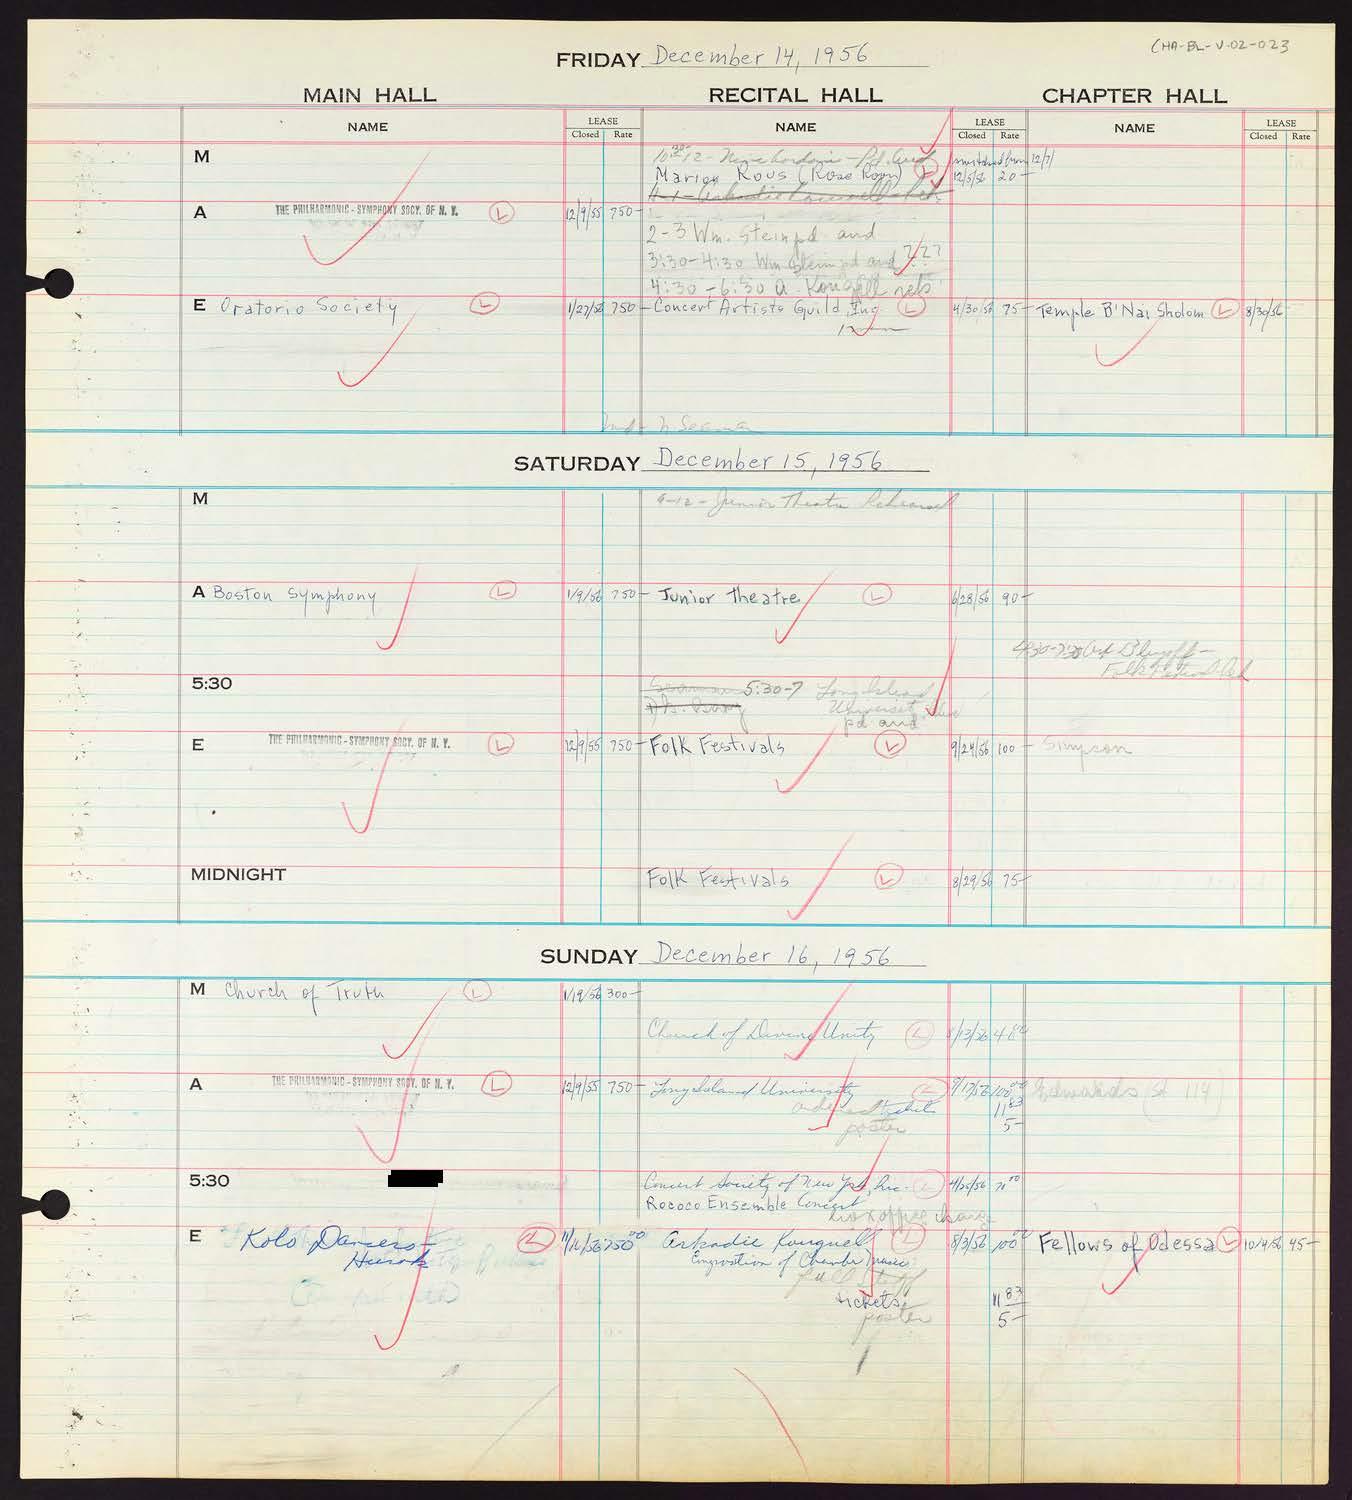 CHA-BL-V-02-023
FRIDAY December 14, 1956
MAIN HALL RECITAL HALL CHAPTER HALL
NAME LEASE Closed Rate NAME LEASE Closed Rate NAME LEASE Closed Rate
M 10:30-12 -
12/7/
Marion Rous (Rose Room) L 12/5/56 20-
A THE PHILHARMONIC-SYMPHONY SOCY. OF N. Y. L 12/9/55 750-
2-3 Wm. Stein pd and
3:30-4:30 Wm Stein pd and ???
4:30-6:30 A. Kouguell reh.
E Oratorio Society L 1/27/56 750- Concert Artists Guild, Inc. L 4/30/56 75- Temple B'Nai Sholom L 8/30/56
N. Seaman
SATURDAY December 15, 1956
M 9-12 - Junior Theatre Rehearsal
A Boston Symphony L 1/9/56 750- Junior Theatre L 6/28/56 90-
4:30-7:30
Folk Festival
5:30 Seaman 5:30-7 Long Island
University
pd and
E THE PHILHARMONIC-SYMPHONY SOCY. OF N. Y. L 12/9/55 750- Folk Festivals L 9/24/56 100- Simpson
MIDNIGHT Folk Festivals L 8/29/56 75-
SUNDAY December 16, 1956
M Church of Truth L 1/19/56 300-
Church of Divine Unity L
A THE PHILHARMONIC-SYMPHONY SOCY. OF N. Y. L 12/9/55 750- Long Island University L 9/17/56 100.00 Edwards (St 114)
tickets 11 83
poster 5-
5:30 Concert Society of New York, Inc. L 4/25/56
Rococo Ensemble Concert
box office charge
E Kolo Dancers - L 11/16/56 750.00 Arkadie Kouguell L 8/3/56 100.00 Fellows of Odessa L 10/4/56 45-
Hurok of Chamber Music
full staff
tickets 11 83
poster 5-